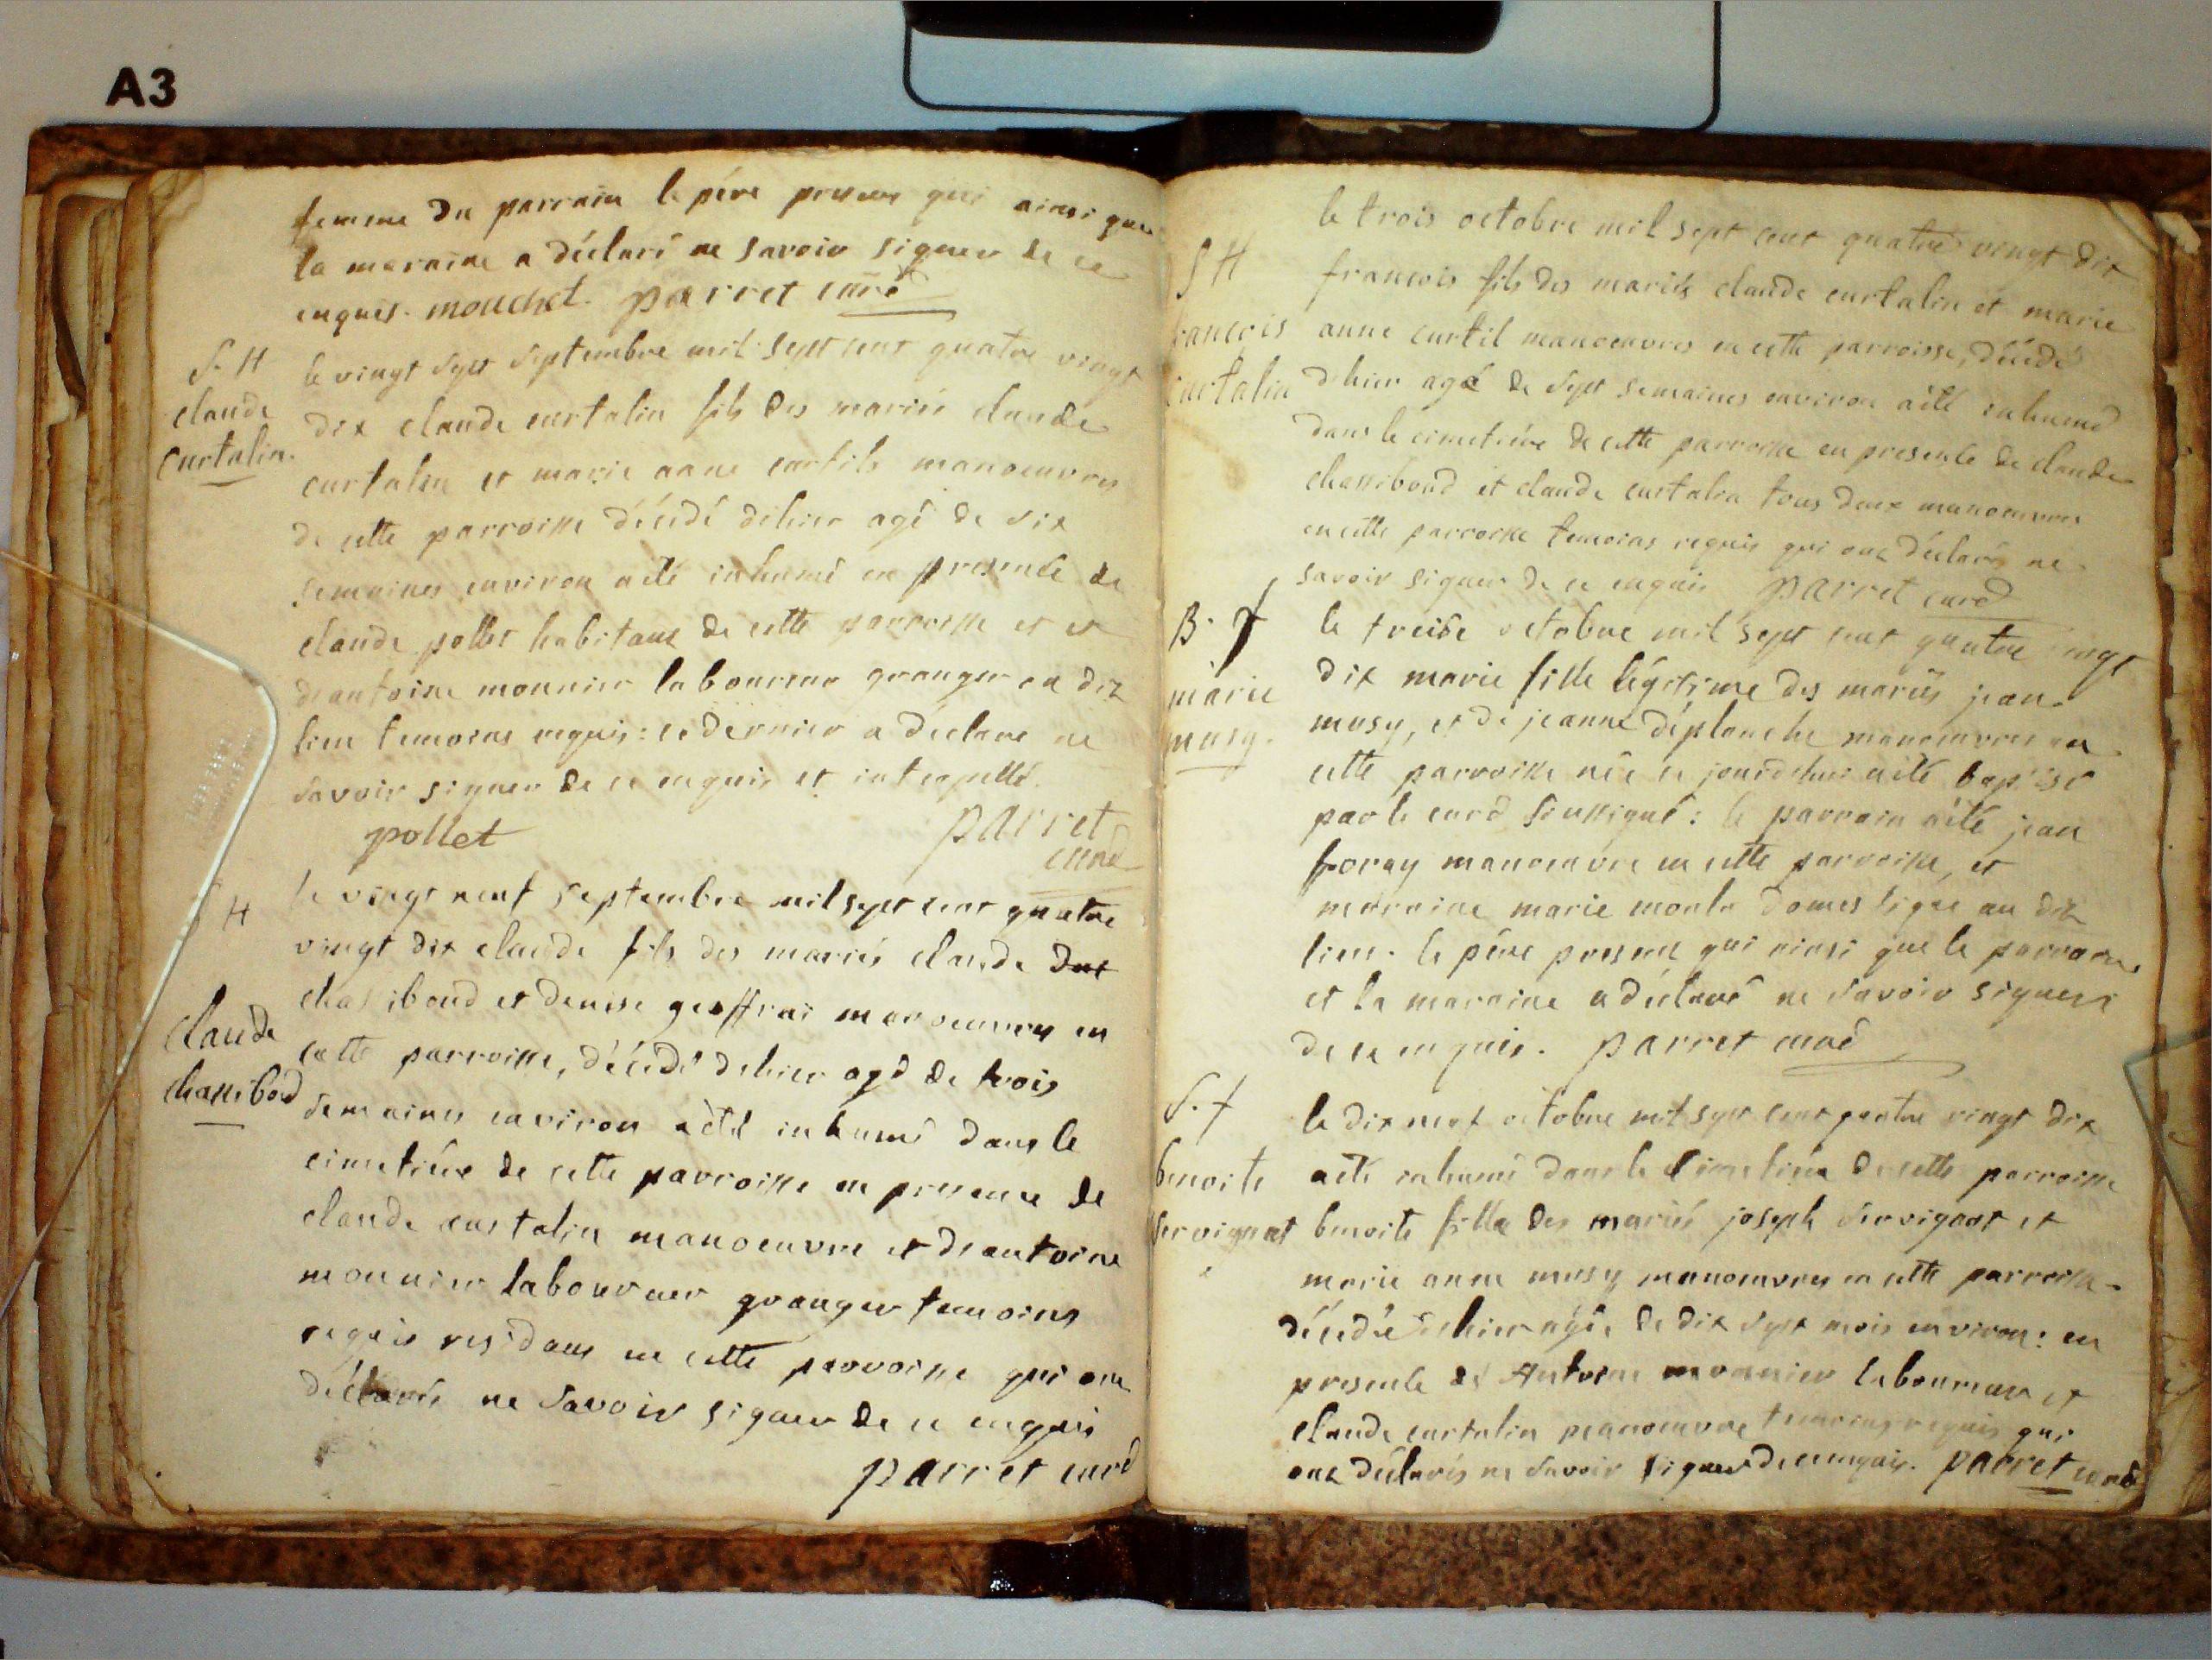 A3
femme du parrain le père present qui ainsi que
la maraine a déclaré ne savoir signer de ce
enquis. mouchet. parret curé
S. H
claude
curtalin.
le vingt sept septembre mil sept cent quatre vingt
dix claude curtalin fils des mariés claude
curtalin et marie anne curtils manoeuvres
de cette parroisse décédé d'hier agé de six
semaines environ a été inhumé en presence de
claude pollet habitant de cette parroisse et et
d'antoine monnier laboureur granger au dit
lieu temoins requis: ce dernier a déclaré ne
savoir signer de ce enquis et interpellé.
pollet parret
curé
S H
claude
chassiboud
le vingt neuf septembre mil sept cent quatre
vingt dix claude fils des mariés claude
chassiboud et denise geoffrai manoeuvres en
cette parroisse, décédé d'hier agé de trois
semaines environ a été inhumé dans le
cimetière de cette parroisse en presence de
claude curtalin manoeuvre et d'antoine
monnier laboureur granger temoins
requis residans en cette parroisse qui ont
déclarés ne savoir signer de ce enquis
parret curé
S H
francois
curtalin
le trois octobre mil sept cent quatre vingt dix
francois fils des mariés claude curtalin et marie
anne curtil manoeuvres en cette parroisse, décédé
d'hier agé de sept semaines environ a été inhumé
dans le cimetière de cette parroisse en presence de claude
chassiboud et claude curtalin tous deux manoeuvres
en cette parroisse temoins requis qui ont déclarés ne
savoir signer de ce enquis parret curé
B. f
marie
musy.
le treise octobre mil sept cent quatre vingt
dix marie fille légitime des mariés jean
musy, et de jeanne déplanche manoeuvres en
cette parroisse née ce jourdhui a été baptisé
par le curé soussigné: le parrain a été jean
foray manoeuvre en cette parroisse, et
marraine marie domestique au dit
lieu. le père present qui ainsi que le parrain
et la maraine a déclaré ne savoir signer
de ce enquis. parret curé
S. f
benoite
servignat
le dix neuf octobre mil sept cent quatre vingt dix
a été inhumé dans le cimetière de cette parroisse
benoite fille des mariés joseph servignat et
marie anne musy manoeuvres en cette parroisse
décédée d'hier agée de dix sept mois environ: en
presence de Antoine monnier laboureur et
claude curtalin manoeuvre temoins requis qui
ont déclarés ne savoir signer de ce enquis. parret curé